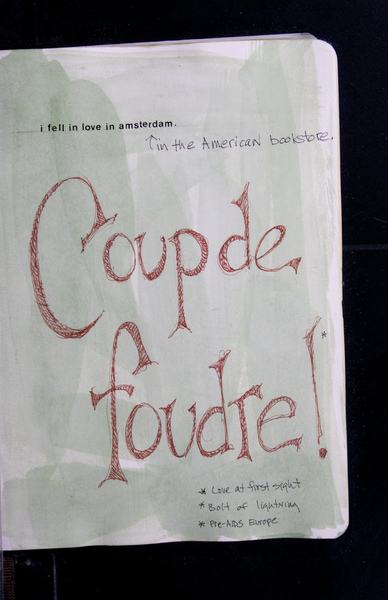 i fell in love in amsterdam.
↑in the American bookstore.
Coup de
foudre!*
* Love at first sight
* Bolt of lightning
* Pre-AIDS Europe